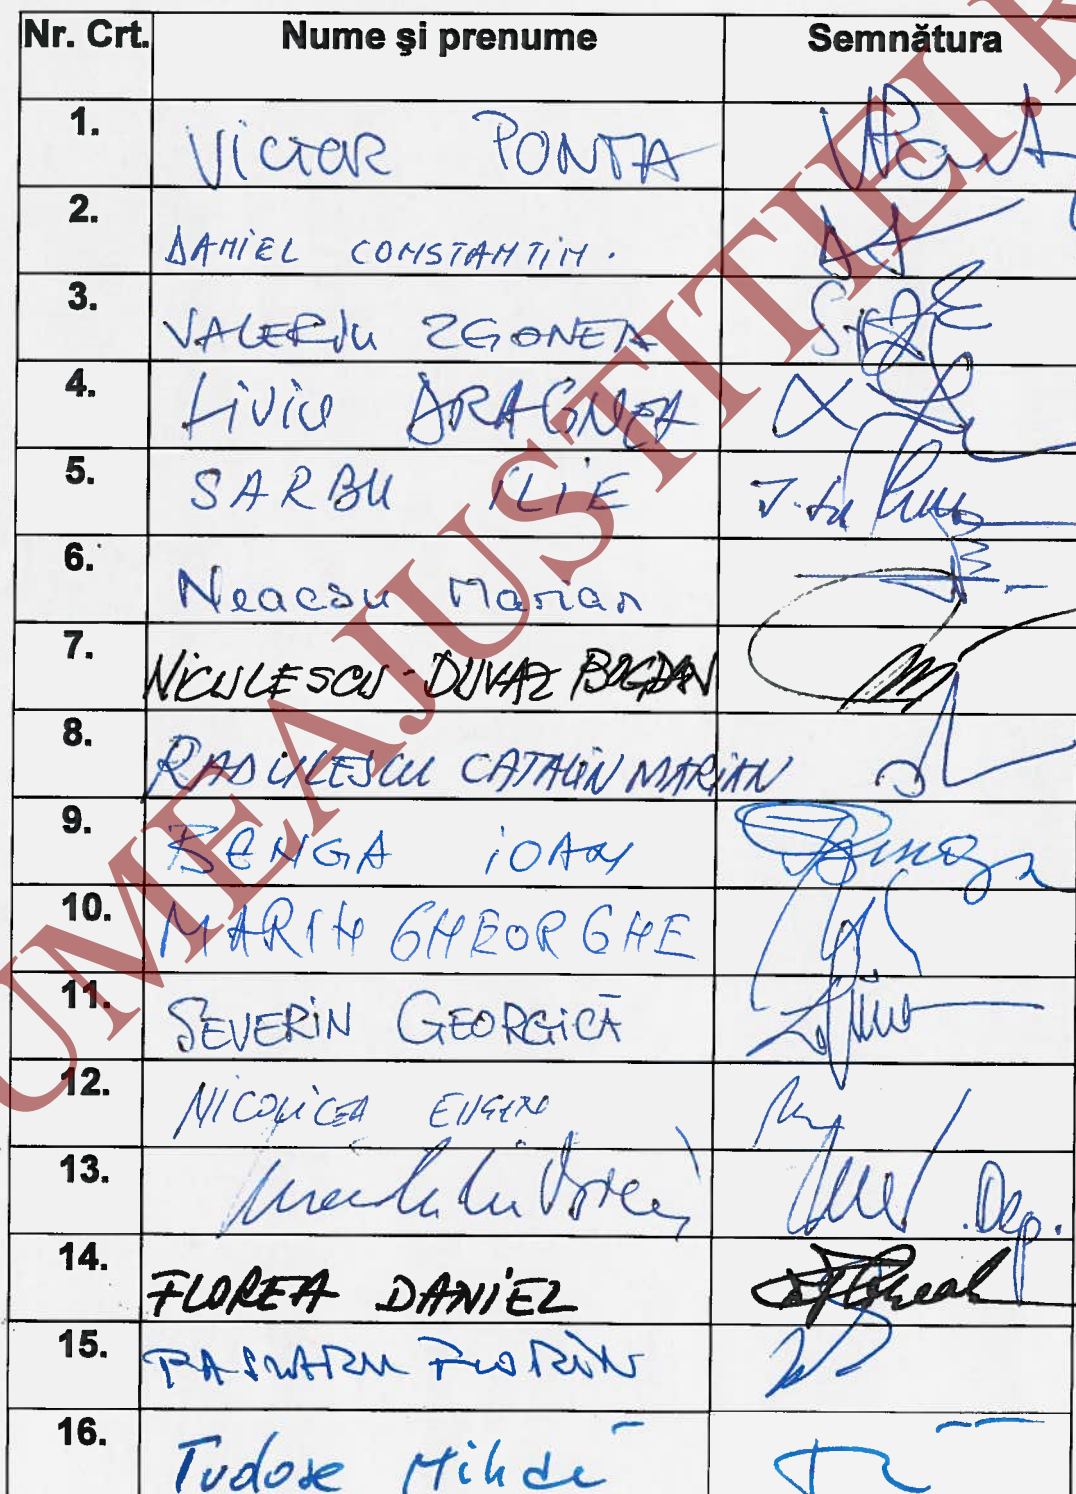 Nr. Crt. Nume și prenume Semnătura
1. VICTOR PONTA VPonta
2. DANIEL CONSTANTIN.
3. VALERIU ZGONEA
4. Liviu DRAGNEA
5. SARBU ILIE
6. Neacsu Marian
7. NICULESCU-DUVAZ BOGDAN
8. RADULESCU CATALIN MARIAN
9. BENGA IOAN
10. MARIN GHEORGHE
11. SEVERIN GEORGICĂ
12. NICOLICEA EUGEN
13. Dep.
14. FLOREA DANIEL
15. PASLARU FLORIN
16. Tudose Mihai
UMEAJUSTITIEI.R